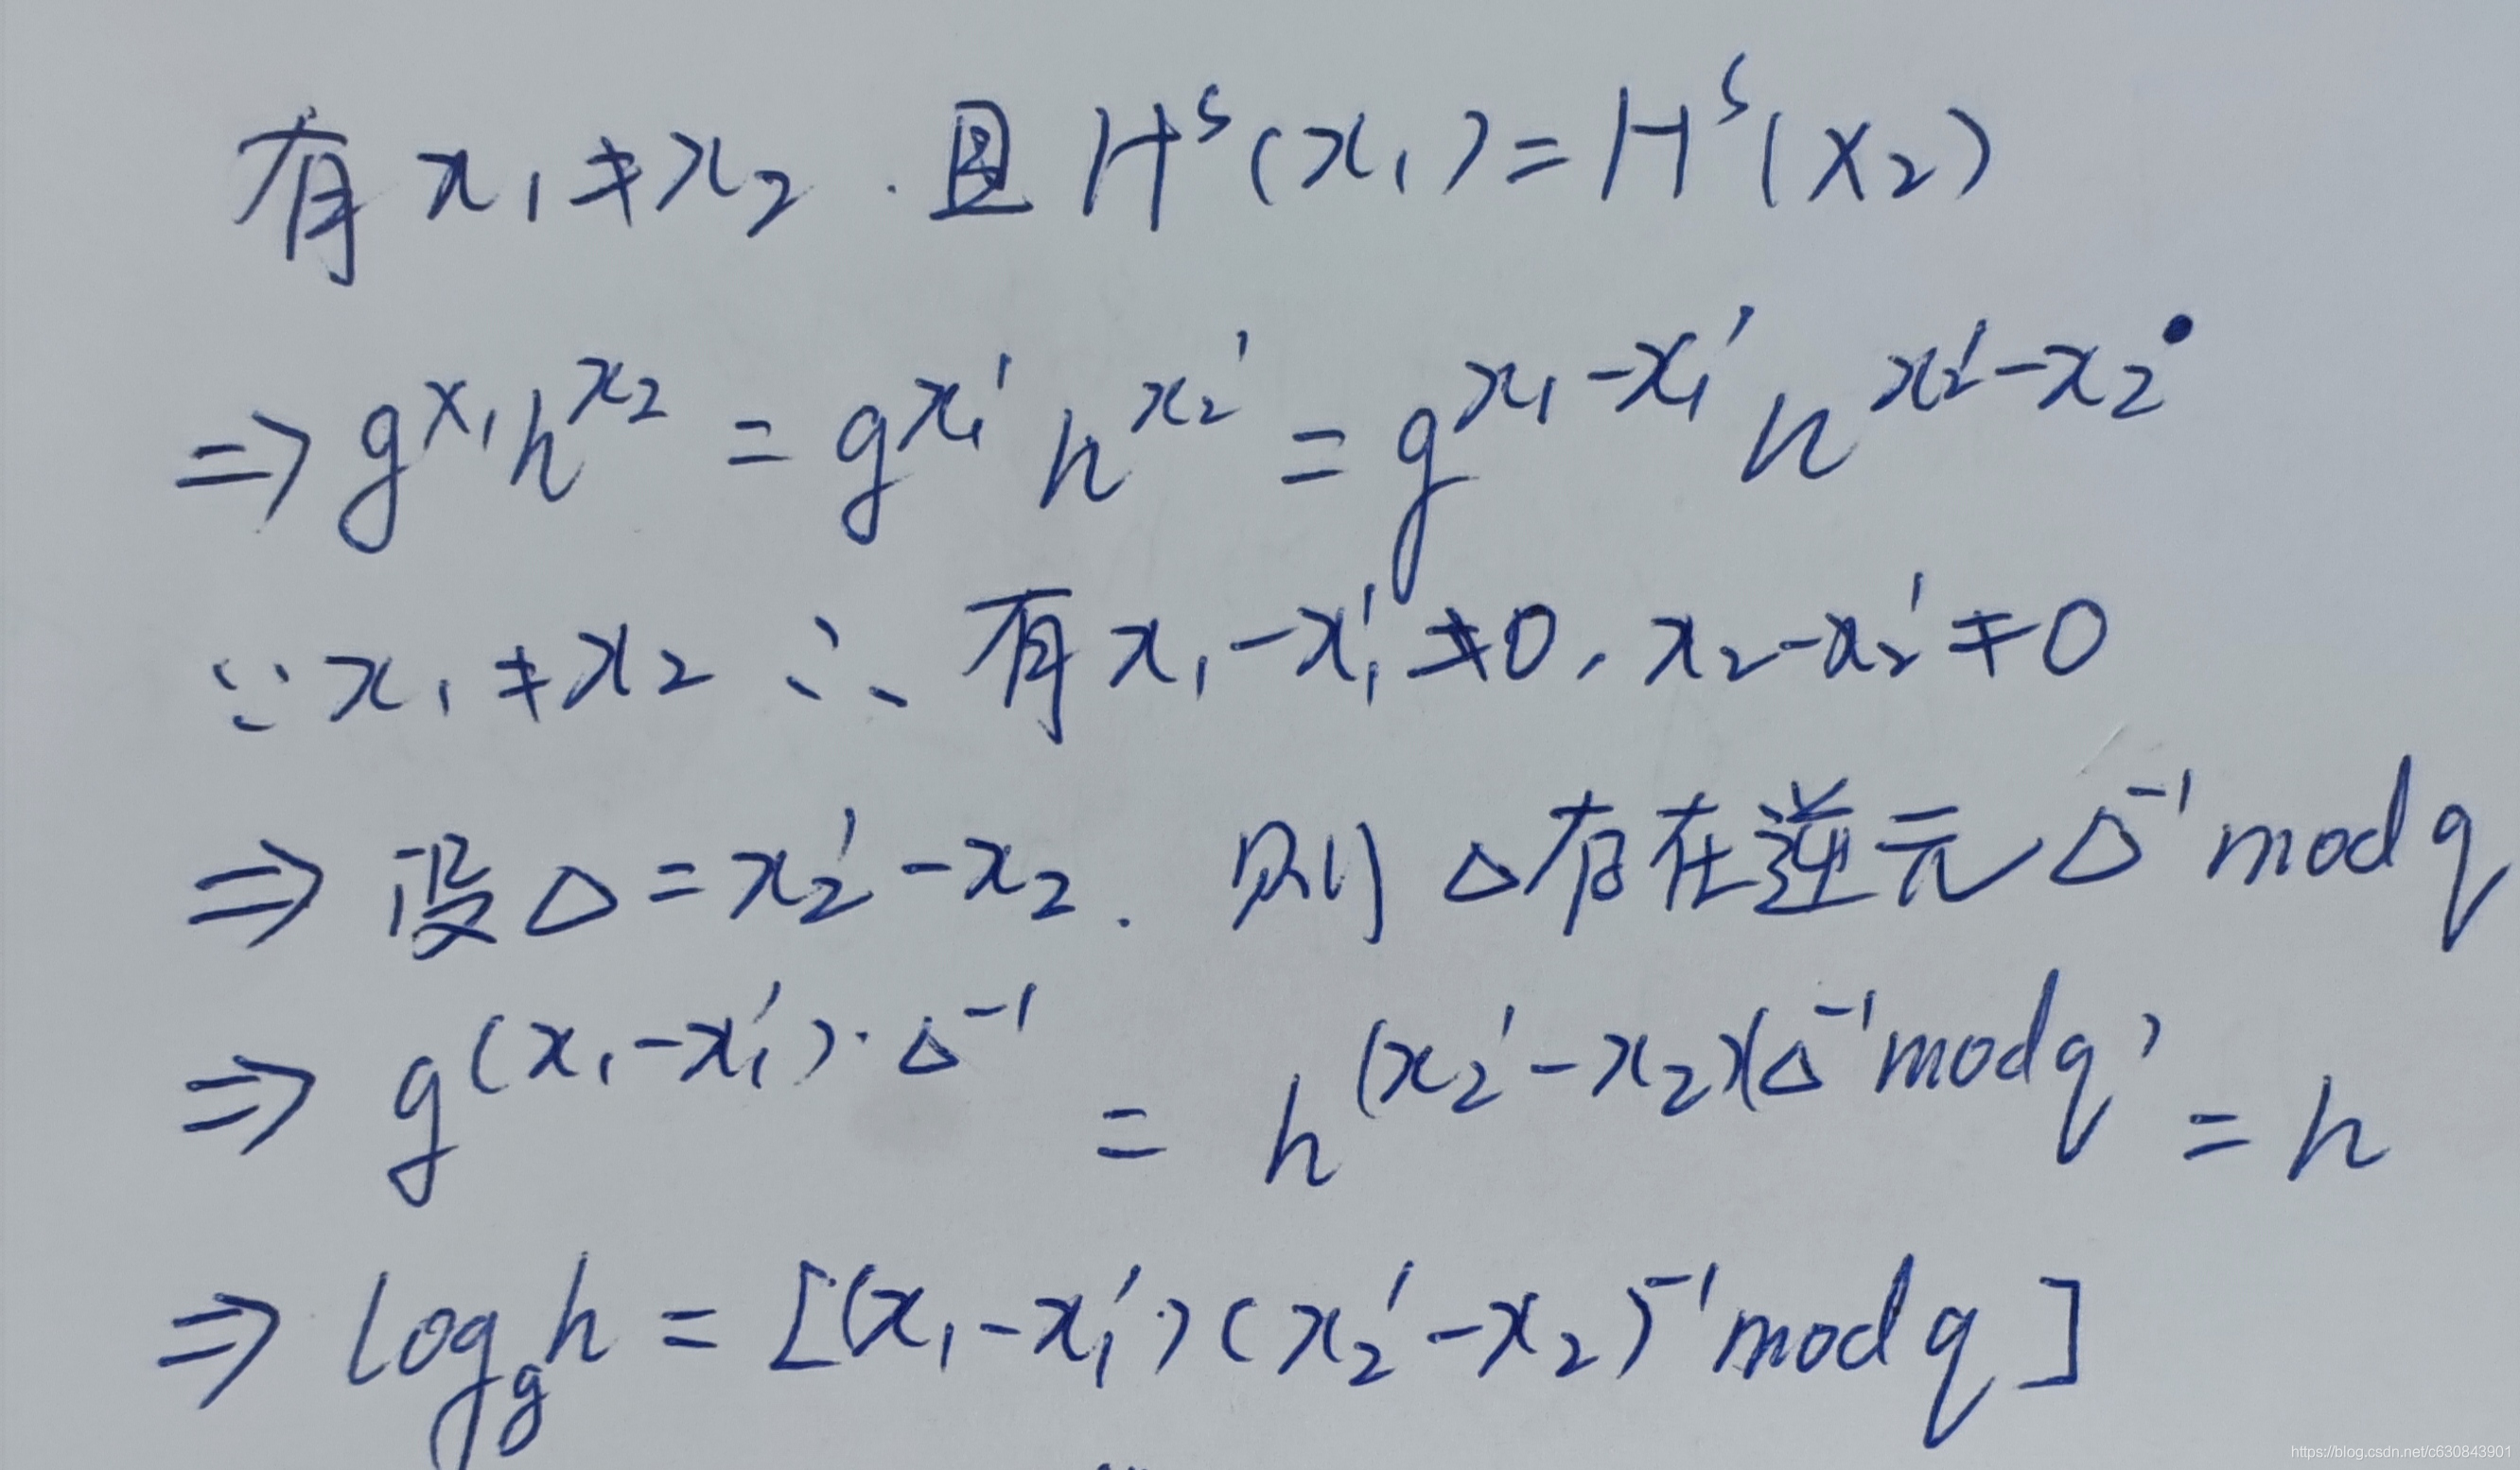 有 x₁ ≠ x₂ . 且 Hˢ(x₁) = Hˢ(x₂)
⇒ g^{x₁} h^{x₂} = g^{x₁'} h^{x₂'} = g^{x₁-x₁'} h^{x₂'-x₂}
∵ x₁ ≠ x₂ ∴ 有 x₁-x₁' ≠ 0, x₂-x₂' ≠ 0
⇒ 设 Δ = x₂' - x₂ . 则 Δ存在逆元 Δ⁻¹ mod q
⇒ g^{(x₁-x₁')·Δ⁻¹} = h^{(x₂'-x₂)(Δ⁻¹ mod q)} = h
⇒ log_g h = [(x₁-x₁')(x₂'-x₂)⁻¹ mod q]
https://blog.csdn.net/c630843901